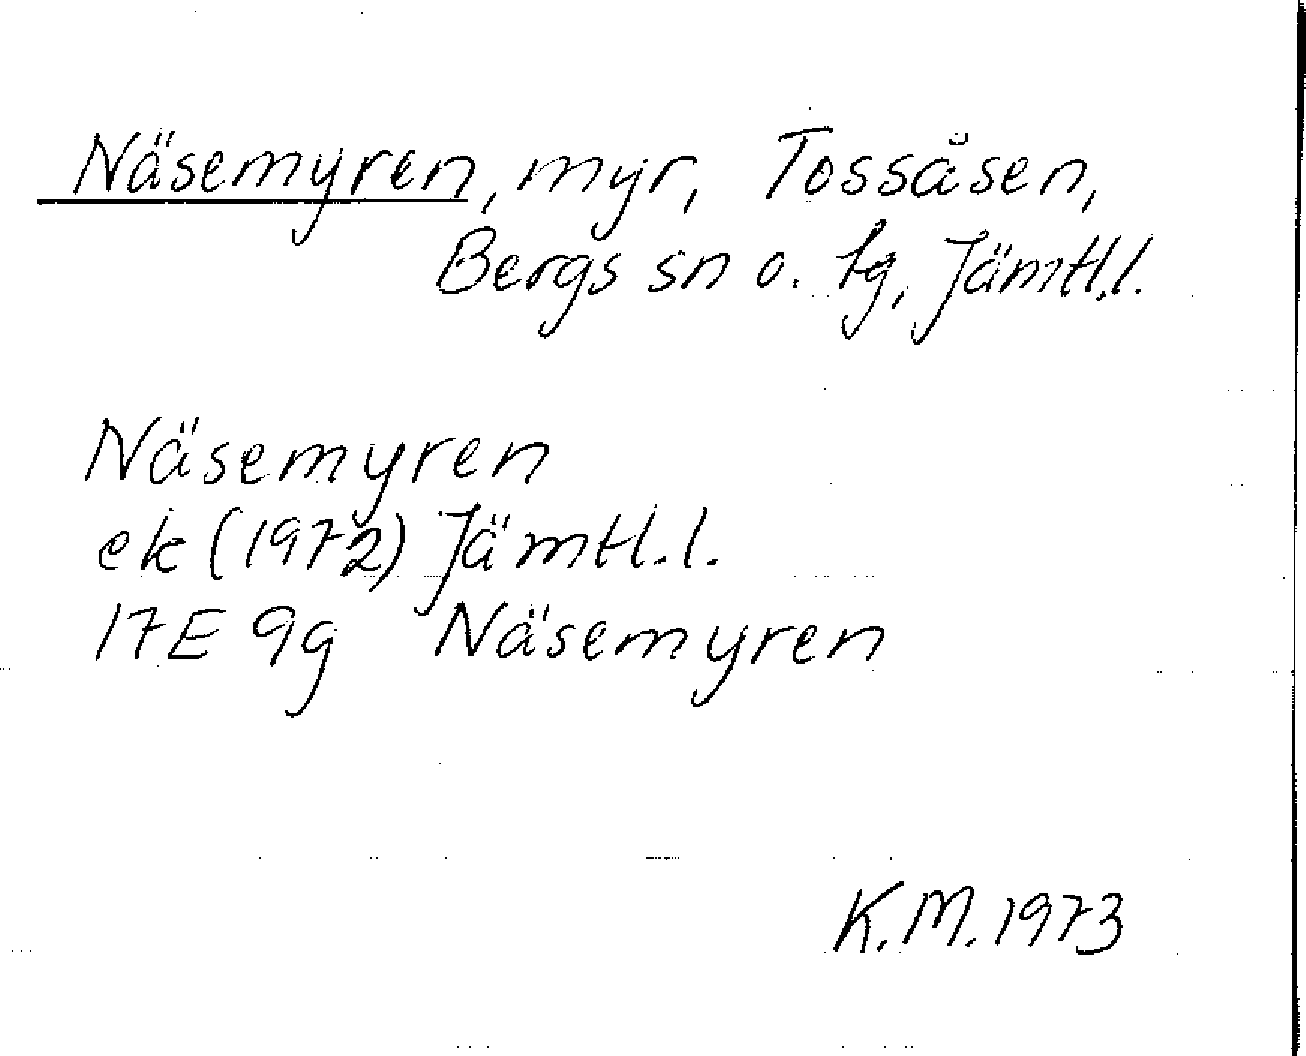 Näsemyren, myr, Tossåsen,
Bergs sn o. tg, Jämtl.l.
Näsemyren
ek (1972) Jämtl.l.
17E 9g Näsemyren
K.M. 1973